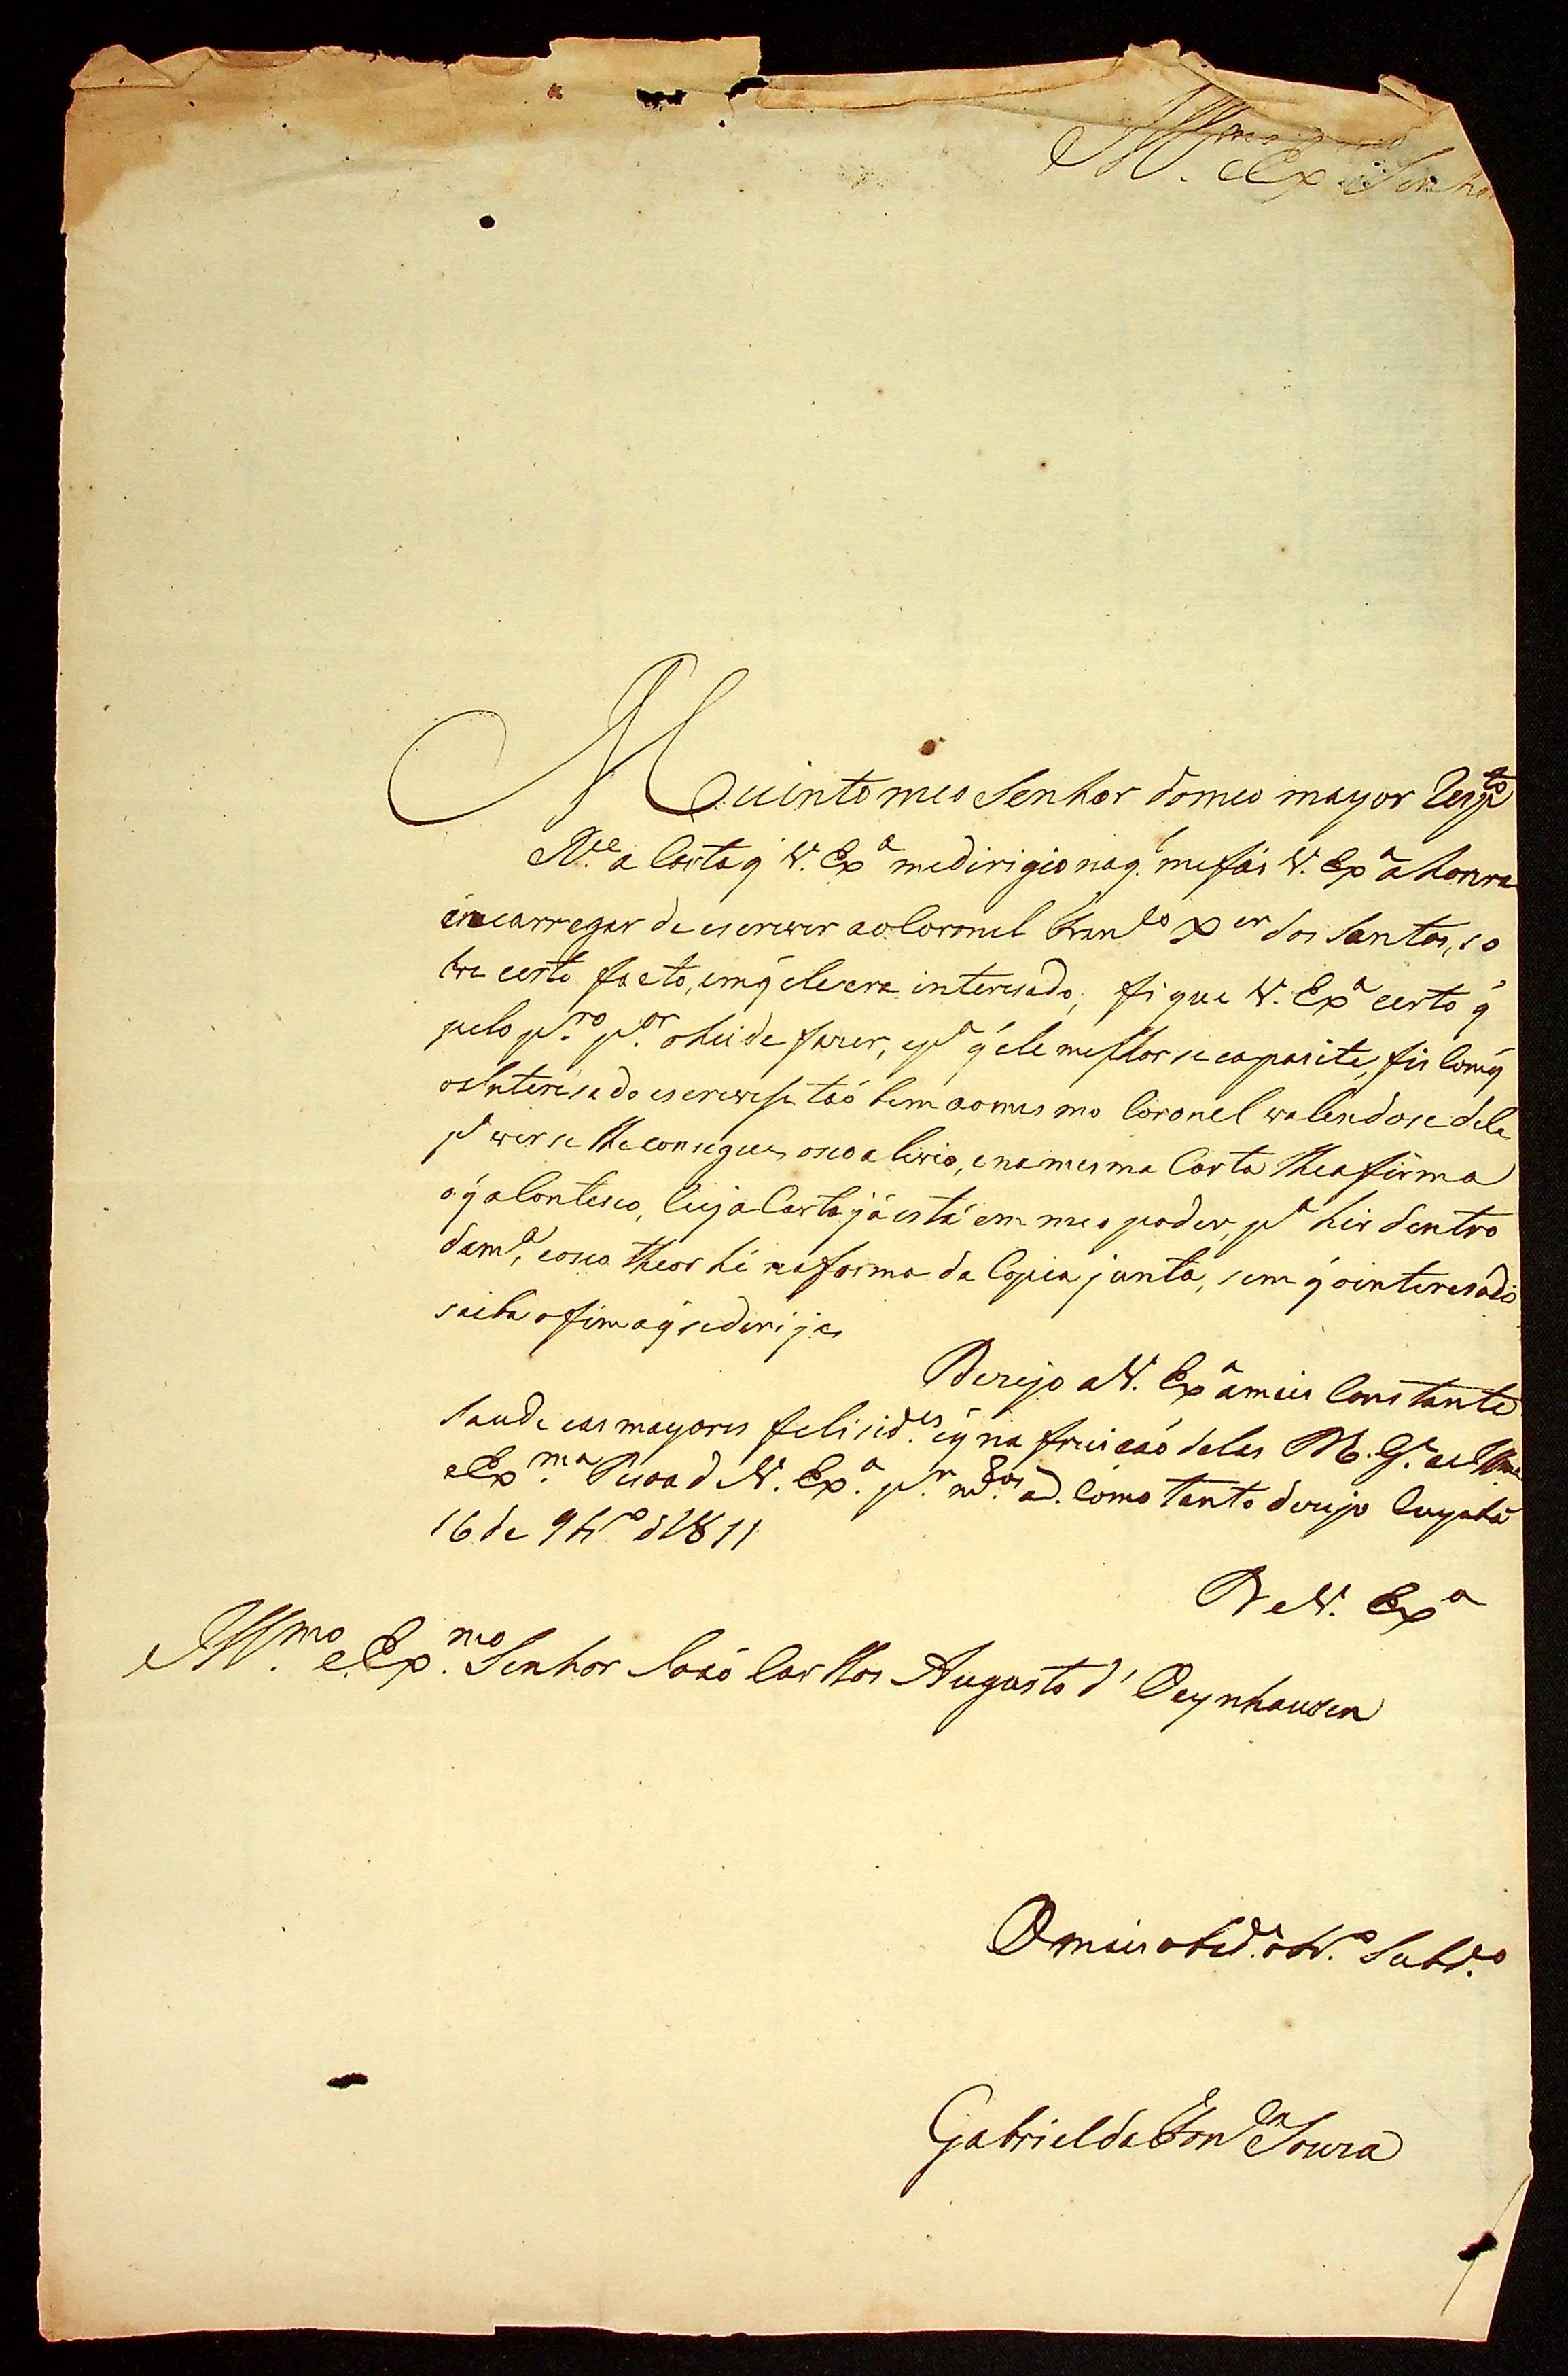 Ill.mo e Ex.mo Senhor
Muinto meo Senhor do meo mayor Resp.to
R.ce a Carta q̃ V. Ex.a me dirigio na q.l me fás V. Ex.a a honra
encarregar de escrever ao Coronel Fran.co X.er dos Santos, so
bre certo facto, em q̃ ele era interesado, fique V. Ex.a certo q̃
pelo pr.o p.or o hei de fazer, e p.a q̃ ele melhor se capasite, fis com q̃
o Interésado escrevese táo bem ao mesmo Coronel valendose dele
p.a ver se lhe consegue o seo alivio, e na mesma Carta lhe afirma
o q̃ aContesco, Cuja Carta já está em meo poder, p.a hir dentro
da m.a, e o seo theor hé na forma da Copia junta, sem q̃ o interesado
saiba o fim a q̃ se derija
Dezejo a V. Ex.a a mais Constante
Saude e as mayores felisid.es e q̃ na fruicáo delas D. G.e a Ill.ma
e Ex.ma Pesoa de V. Ex.a p.r m.tos a.s Como tanto dezejo Cuyabá
16 de 9br.o d 1811
De V. Ex.a
Ill.mo e Ex.mo Senhor Joáo Carllos Augusto d' Oeynhausen
O mais obd.e obr.o Subd.o
Gabriel da Fon.ca Souza